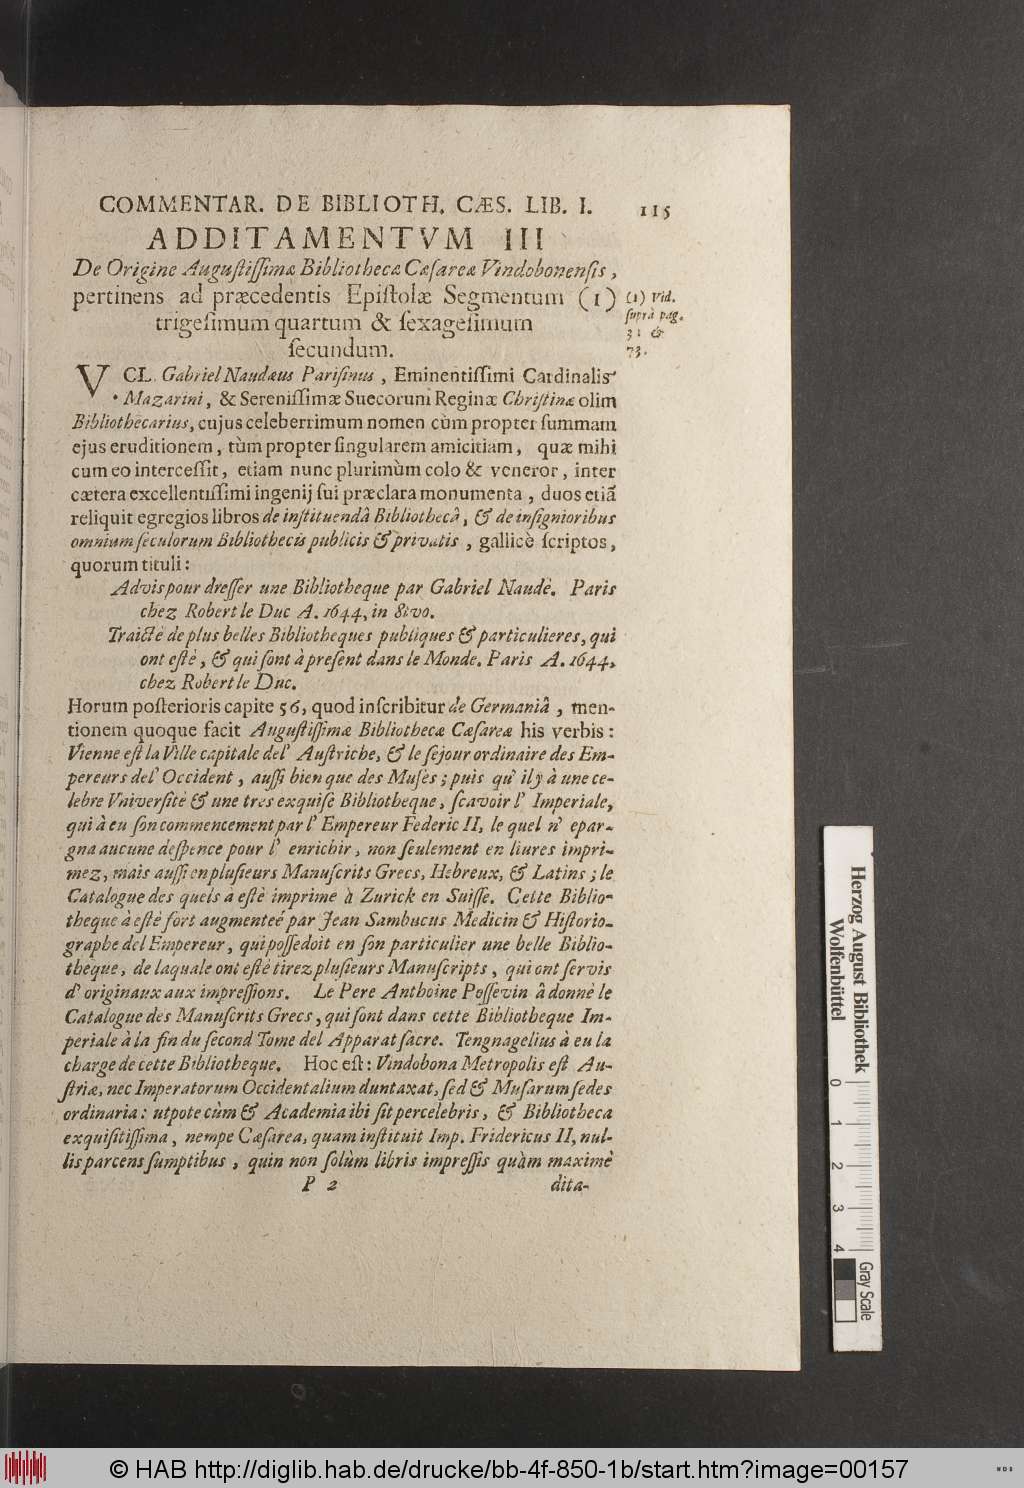 COMMENTAR. DE BIBLIOTH. CÆS. LIB. I. 115
ADDITAMENTVM III
De Origine Auguſtiſſimæ Bibliothecæ Cæſareæ Vindobonenſis,
pertinens ad præcedentis Epiſtolæ Segmentum (1)
trigeſimum quartum & ſexageſimum
ſecundum.
(1) Vid.
ſuprà pag.
31 &
73.
V CL. Gabriel Naudæus Pariſinus, Eminentiſſimi Cardinalis
. Mazarini, & Sereniſſimæ Suecorum Reginæ Chriſtinæ olim
Bibliothecarius, cujus celeberrimum nomen cùm propter ſummam
ejus eruditionem, tùm propter ſingularem amicitiam, quæ mihi
cum eo interceſſit, etiam nunc plurimùm colo & veneror, inter
cætera excellentiſſimi ingenij ſui præclara monumenta, duos etiã
reliquit egregios libros de inſtituendâ Bibliothecâ, & de inſignioribus
omnium ſeculorum Bibliothecis publicis & privatis, gallicè ſcriptos,
quorum tituli:
Advis pour dreſſer une Bibliotheque par Gabriel Naudè. Paris
chez Robert le Duc A. 1644, in 8vo.
Traictè de plus belles Bibliotheques publiques & particulieres, qui
ont eſtè, & qui ſont à preſent dans le Monde. Paris A. 1644,
chez Robert le Duc.
Horum poſterioris capite 56, quod inſcribitur de Germaniâ, men-
tionem quoque facit Auguſtiſſimæ Bibliothecæ Cæſareæ his verbis:
Vienne eſt la Ville capitale del' Auſtriche, & le ſejour ordinaire des Em-
pereurs del' Occident, auſſi bien que des Muſes; puis qu' il y à une ce-
lebre Vniverſitè & une tres exquiſe Bibliotheque, ſcavoir l' Imperiale,
qui à eu ſon commencement par l' Empereur Federic II, le quel n' epar-
gna aucune deſpence pour l' enrichir, non ſeulement en liures impri-
mez, mais auſſi en pluſieurs Manuſcrits Grecs, Hebreux, & Latins; le
Catalogue des quels à eſtè imprime à Zurick en Suiſſe. Cette Biblio-
theque à eſtè fort augmenteé par Jean Sambucus Medicin & Hiſtorio-
graphe del Empereur, qui poſſedoit en ſon particulier une belle Biblio-
theque, de laquale ont eſtè tirez pluſieurs Manuſcripts, qui ont ſervis
d' originaux aux impreſſions. Le Pere Anthoine Poſſevin â donnè le
Catalogue des Manuſcrits Grecs, qui ſont dans cette Bibliotheque Im-
periale à la fin du ſecond Tome del Apparat ſacre. Tengnagelius à eu la
charge de cette Bibliotheque. Hoc eſt: Vindobona Metropolis eſt Au-
ſtriæ, nec Imperatorum Occidentalium duntaxat, ſed & Muſarum ſedes
ordinaria: utpote cùm & Academia ibi ſit percelebris, & Bibliotheca
exquiſitiſſima, nempe Cæſarea, quam inſtituit Imp. Fridericus II, nul-
lis parcens ſumptibus, quin non ſolùm libris impreſſis quàm maximè
P 2 dita-
Herzog August Bibliothek
Wolfenbüttel
0 1 2 3 4
Gray Scale
© HAB http://diglib.hab.de/drucke/bb-4f-850-1b/start.htm?image=00157